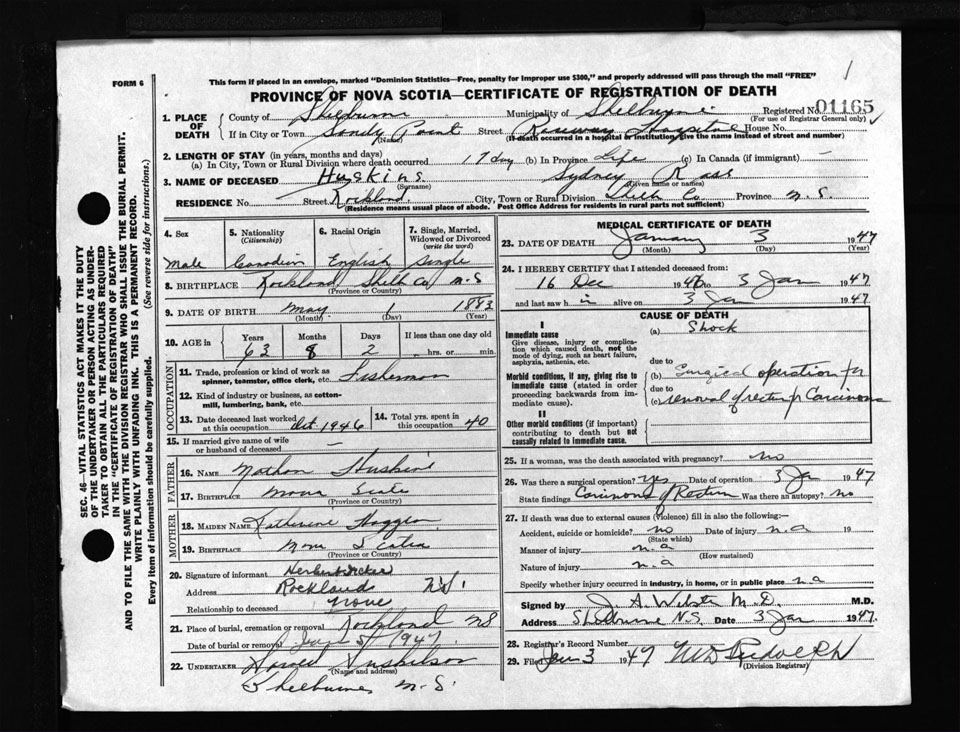 FORM 6
This form if placed in an envelope, marked "Dominion Statistics—Free, penalty for improper use $300," and properly addressed will pass through the mail "FREE"
PROVINCE OF NOVA SCOTIA—CERTIFICATE OF REGISTRATION OF DEATH
1. PLACE OF DEATH
County of Shelburne Municipality of Shelburne Registered No. 01165
(For use of Registrar General only)
If in City or Town Sandy Point Street Roseway Hospital House No.
(Name) (If death occurred in a hospital or institution, give the name instead of street and number)
2. LENGTH OF STAY (in years, months and days)
(a) In City, Town or Rural Division where death occurred 17 day (b) In Province Life (c) In Canada (if immigrant) —
3. NAME OF DECEASED Huskins Sydney Ross
(Surname) (Given name or names)
RESIDENCE No. Street Rockland City, Town or Rural Division Shelb Co. Province N.S.
(Residence means usual place of abode. Post Office Address for residents in rural parts not sufficient)
4. Sex
Male
5. Nationality
(Citizenship)
Canadian
6. Racial Origin
English
7. Single, Married, Widowed or Divorced
(write the word)
Single
8. BIRTHPLACE Rockland Shelb Co N.S
(Province or Country)
9. DATE OF BIRTH May 1 1883
(Month) (Day) (Year)
10. AGE in
Years Months Days If less than one day old
63 8 2 hrs. or min.
OCCUPATION
11. Trade, profession or kind of work as spinner, teamster, office clerk, etc. Fisherman
12. Kind of industry or business, as cotton-mill, lumbering, bank, etc.
13. Date deceased last worked at this occupation Oct. 1946
14. Total yrs. spent in this occupation 40
15. If married give name of wife or husband of deceased —
FATHER
16. NAME Nathan Huskins
17. BIRTHPLACE Nova Scotia
(Province or Country)
MOTHER
18. MAIDEN NAME Katherine
19. BIRTHPLACE Nova Scotia
(Province or Country)
20. Signature of informant Herbert
Address Rockland N.S.
Relationship to deceased None
21. Place of burial, cremation or removal Rockland NS
Date of burial or removal Jan 5, 1947.
22. UNDERTAKER
(Name and address)
Shelburne, N.S.
MEDICAL CERTIFICATE OF DEATH
23. DATE OF DEATH January 3 1947
(Month) (Day) (Year)
24. I HEREBY CERTIFY that I attended deceased from:
16 Dec 1946 to 3 Jan 1947
and last saw h im alive on 3 Jan 1947
CAUSE OF DEATH
I
Immediate cause
Give disease, injury or complication which caused death, not the mode of dying, such as heart failure, asphyxia, asthenia, etc.
(a) Shock
due to
Morbid conditions, if any, giving rise to immediate cause (stated in order proceeding backwards from immediate cause).
(b) Surgical operation for
due to
(c) removal of rectum for Carcinoma
II
Other morbid conditions (if important) contributing to death but not causally related to immediate cause.
25. If a woman, was the death associated with pregnancy? no
26. Was there a surgical operation? Yes Date of operation 3 Jan 1947
State findings Carcinoma of Rectum Was there an autopsy? no
27. If death was due to external causes (violence) fill in also the following:—
Accident, suicide or homicide? no Date of injury n.a 19
(State which)
Manner of injury n.a
(How sustained)
Nature of injury n.a
Specify whether injury occurred in industry, in home, or in public place n.a
Signed by J. A. Webster M.D. M.D.
Address Shelburne N.S. Date 3 Jan 1947.
28. Registrar's Record Number
29. Filed Jan 3 1947
(Division Registrar)
SEC. 46- VITAL STATISTICS ACT MAKES IT THE DUTY
OF THE UNDERTAKER OR PERSON ACTING AS UNDER-
TAKER TO OBTAIN ALL THE PARTICULARS REQUIRED
IN THE "CERTIFICATE OF REGISTRATION OF DEATH"
AND TO FILE THE SAME WITH THE DIVISION REGISTRAR WHO SHALL ISSUE THE BURIAL PERMIT.
WRITE PLAINLY WITH UNFADING INK. THIS IS A PERMANENT RECORD.
Every item of information should be carefully supplied. (See reverse side for instructions.)